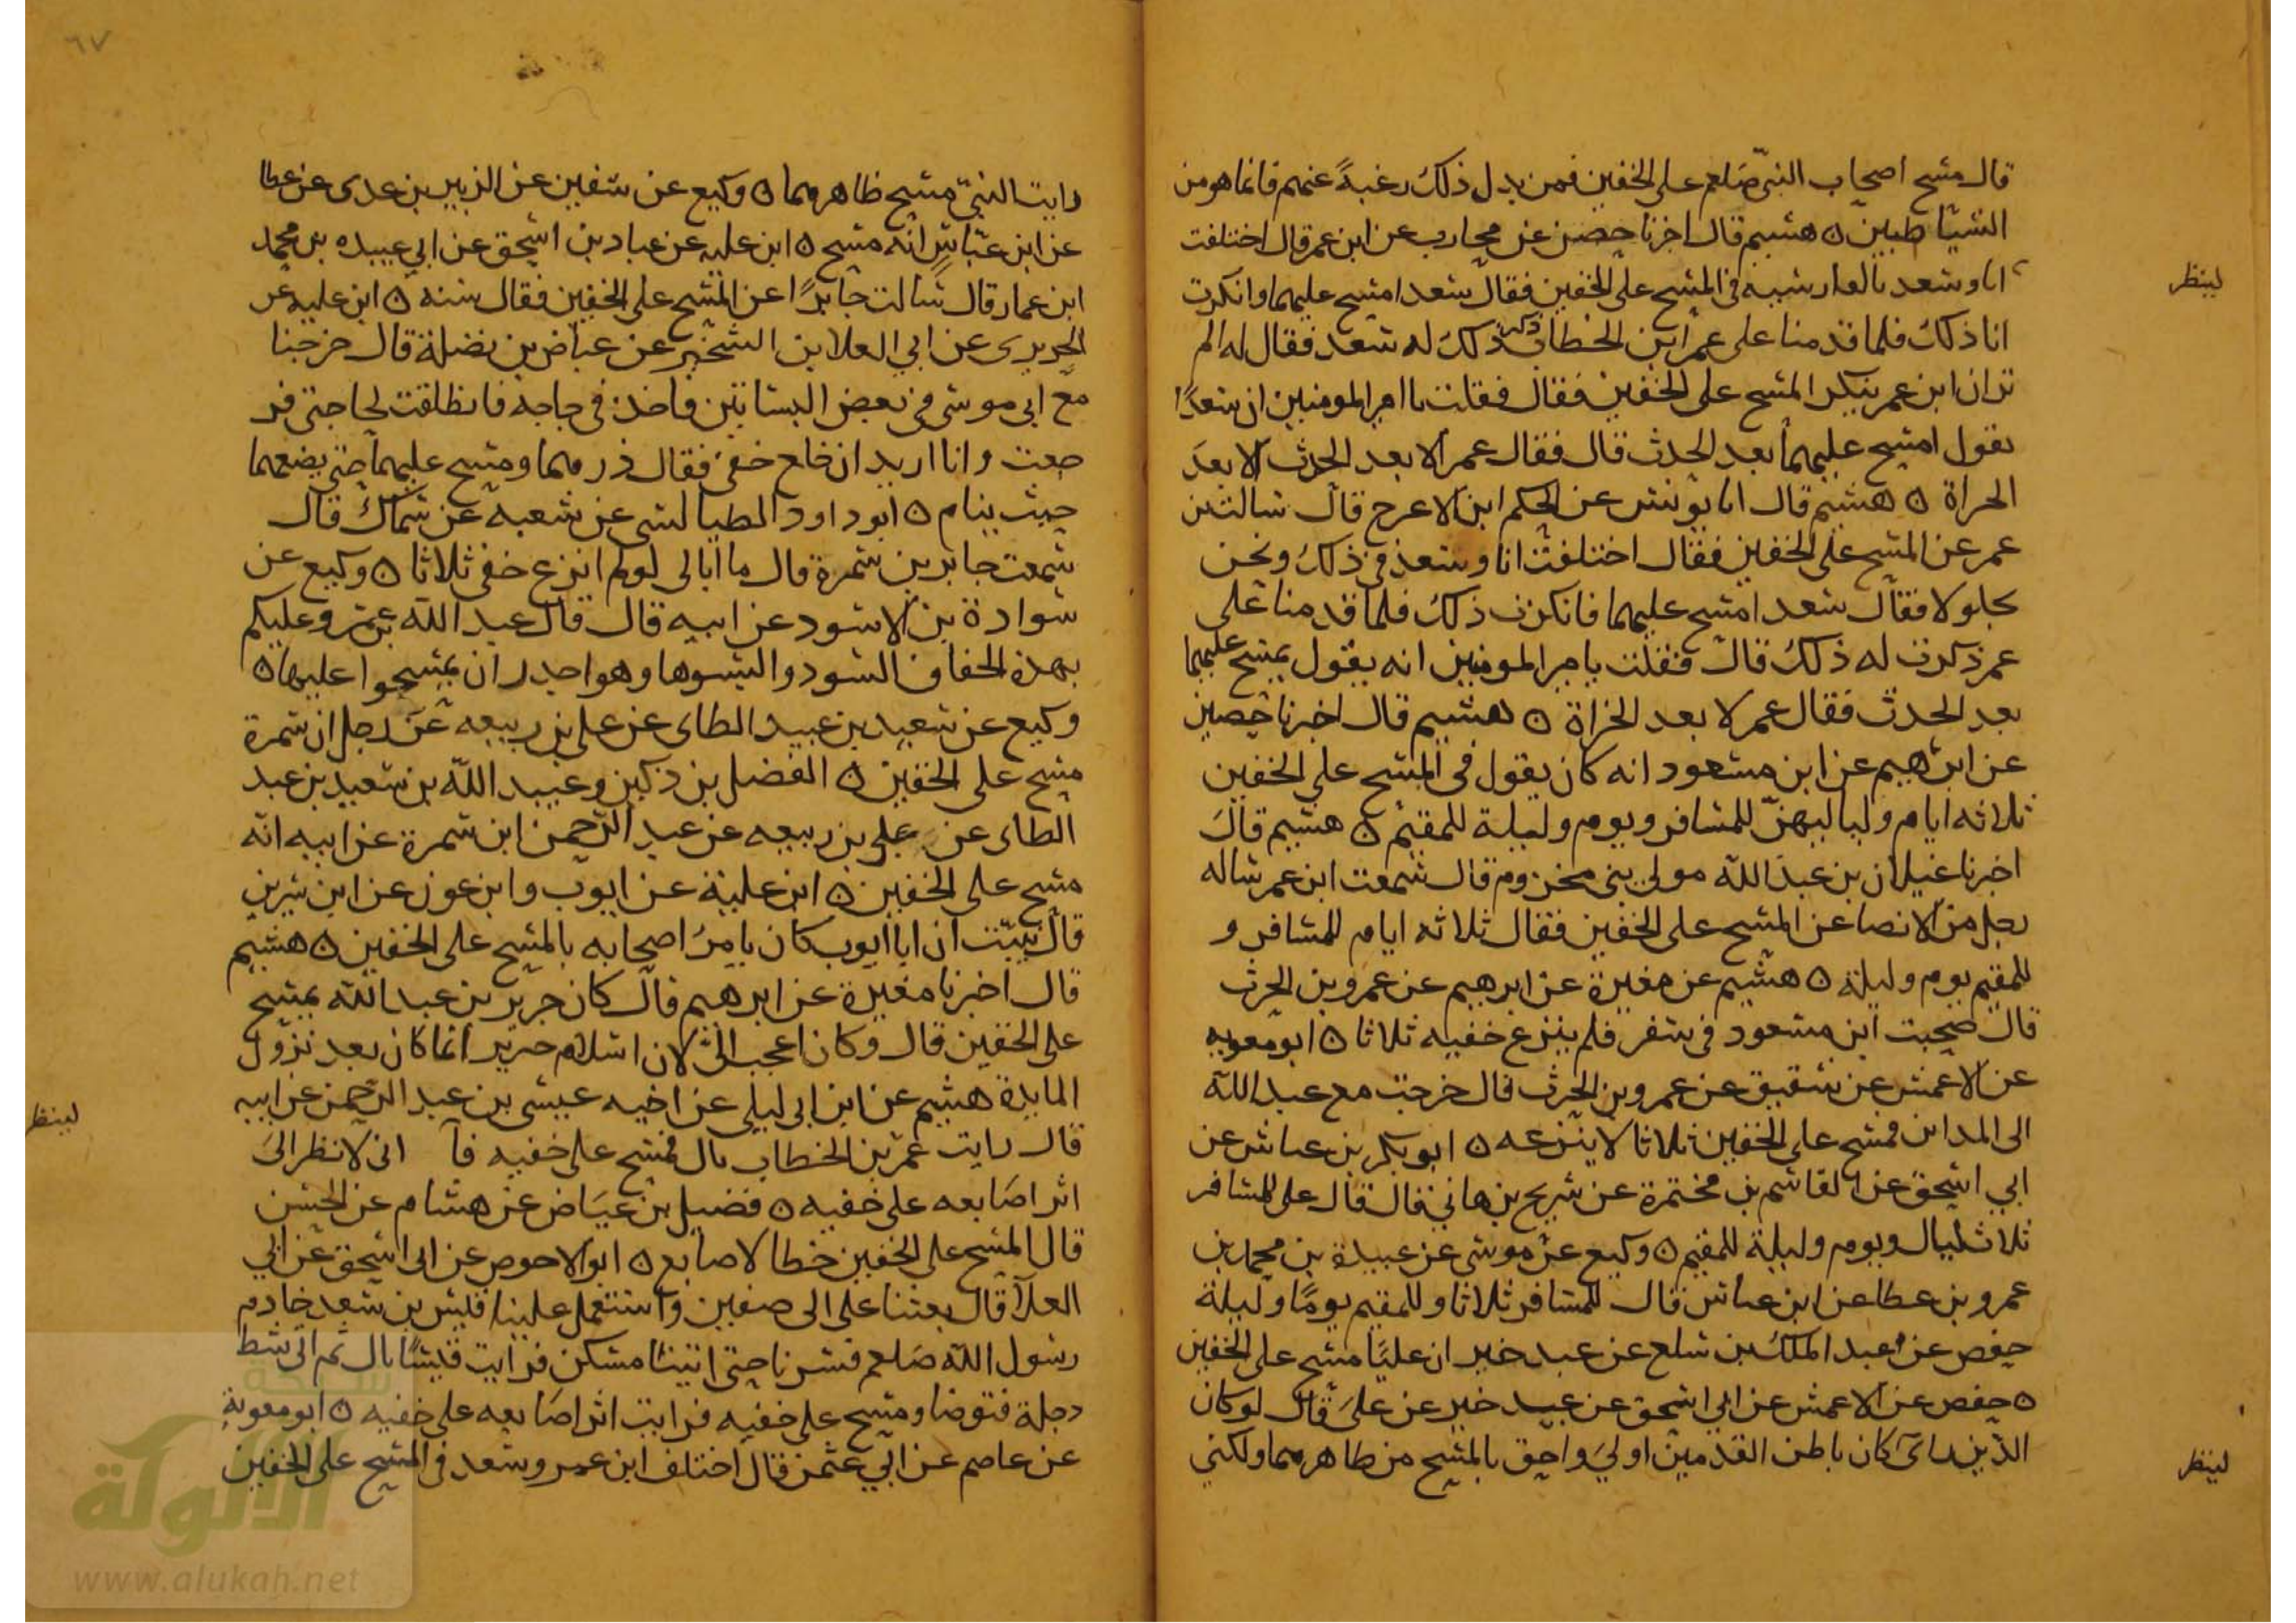 قال مسح اصحاب النبي صلعم على الخفين فمن بدل ذلك رغبة عنهم فانما هو من
الشياطين ٥ هشيم قال اخبرنا حصين عن محارب عن ابن عمر قال اختلفت
انا وسعد بالقادسيه في المسح على الخفين فقال سعد امسح عليهما وانكرت
لينظر
انا ذلك فلما قدمنا على عمر ابن الخطاب ذكر ذلك له سعد فقال له الم
تر ان ابن عمر ينكر المسح على الخفين فقال فقلت يا امير المومنين ان سعدا
يقول امسح عليهما بعد الحدث قال فقال عمر الا بعد الحدث الا بعد
الخراة ٥ هشيم قال انا يونس عن الحكم ابن الاعرج قال سالت بن
عمر عن المسح على الخفين فقال اختلفت انا وسعد في ذلك ونحن
بجلولا فقال سعد امسح عليهما فانكرت ذلك فلما قدمنا على
عمر ذكرت له ذلك قال فقلت يامير المومنين انه يقول يمسح عليهما
بعد الحدث فقال عمر لا بعد الخراة ٥ هشيم قال اخبرنا حصين
عن ابرهيم عن ابن مسعود انه كان يقول في المسح على الخفين
ثلاثه ايام ولياليهن للمسافر ويوم وليلة للمقيم ٥ هشيم قال
اخبرنا غيلان بن عبد الله مولى بني مخزوم قال سمعت ابن عمر ساله
رجل من الانصا عن المسح على الخفين فقال ثلاثه ايام للمسافر و
للمقيم يوم وليلة ٥ هشيم عن مغيرة عن ابرهيم عن عمرو بن الحرث
قال صحبت ابن مسعود في سفر فلم ينزع خفيه ثلاثا ٥ ابو معويه
عن الاعمش عن شقيق عن عمرو بن الحرث قال خرجت مع عبد الله
الى المداين فمسح على الخفين ثلاثا لا ينزعه ٥ ابو بكر بن عياش عن
ابي اسحق عن القاسم بن مخيمرة عن شريح بن هاني قال قال علي للمسافر
ثلاث ليال ويوم وليلة للمقيم ٥ وكيع عن موسى عن عبيدة بن محمد بن
عمرو بن عطا عن ابن عباس قال للمسافر ثلاثا وللمقيم يوما وليلة
حفص عن عبد الملك بن سلع عن عبد خير ان عليا مسح على الخفين
٥ حفص عن الاعمش عن ابي اسحق عن عبد خير عن على قال لو كان
الدين كان باطن القدمين اولى واحق بالمسح من ظاهرهما ولكني
لينظر
٦٧
رايت النبي مسح ظاهرهما ٥ وكيع عن سفين عن الزبير بن عدى عن عطا
عن ابن عباس انه مسح ٥ ابن عليه عن عباد بن اسحق عن ابي عبيده بن محمد
ابن عمار قال سالت جابرا عن المسح على الخفين فقال سنه ٥ ابن عليه عن
الجريرى عن ابي العلا بن الشخير عن عياض بن نضلة قال خرجنا
مع ابي موسى في بعض البساتين فاخذ في حاجه فانطلقت لحاجتي فر
جعت وانا اريد ان اخلع خفي فقال ذرهما ومسح عليهما حتى يضعهما
حيث ينام ٥ ابو داود الطيالسي عن شعبه عن سماك قال
سمعت جابر بن سمرة قال ما ابالى لو لم انزع خفي ثلاثا ٥ وكيع عن
سوادة بن الاسود عن ابيه قال قال عبد الله بن عمرو عليكم
بهذه الخفاف السود والبسوها وهو اجدر ان يمسحوا عليها ٥
وكيع عن سعيد بن عبيد الطاى عن علي بن ربيعه عن رجل ان سمرة
مسح على الخفين ٥ الفضل بن دكين وعبيد الله بن سعيد بن عبد
الطاى عن علي بن ربيعه عن عبد الرحمن ابن سمرة عن ابيه انه
مسح على الخفين ٥ ابن علية عن ايوب وابن عون عن ابن سيرين
قال نبيت ان ابا ايوب كان يامر اصحابه بالمسح على الخفين ٥ هشيم
قال اخبرنا مغيرة عن ابرهيم قال كان جرير بن عبد الله يمسح
على الخفين قال وكان اعجب الى لان اسلام جرير انما كان بعد نزول
المايدة هشيم عن ابن ابى ليلى عن اخيه عيسى بن عبد الرحمن عن ابيه
لينظر
قال رايت عمر بن الخطاب بال فمسح على خفيه قا اني لانظر الى
اثر اصابعه على خفيه ٥ فضيل بن عياض عن هشام عن الحسن
قال المسح على الخفين خطا لاصابع ٥ ابو الاحوص عن ابى اسحق عن ابي
العلا قال بعثنا على الى صفين واستعمل علينا قيس بن سعد خادم
رسول الله صلعم فسرنا حتى اتينا مسكن فرايت قيسا بال ثم اتى شط
دجلة فتوضا ومسح على خفيه فرايت اثر اصابعه على خفيه ٥ ابو معوية
عن عاصم عن ابي عثمن قال اختلف ابن عمر وسعد في المسح على الخفين
شبكة
الألوكة
www.alukah.net